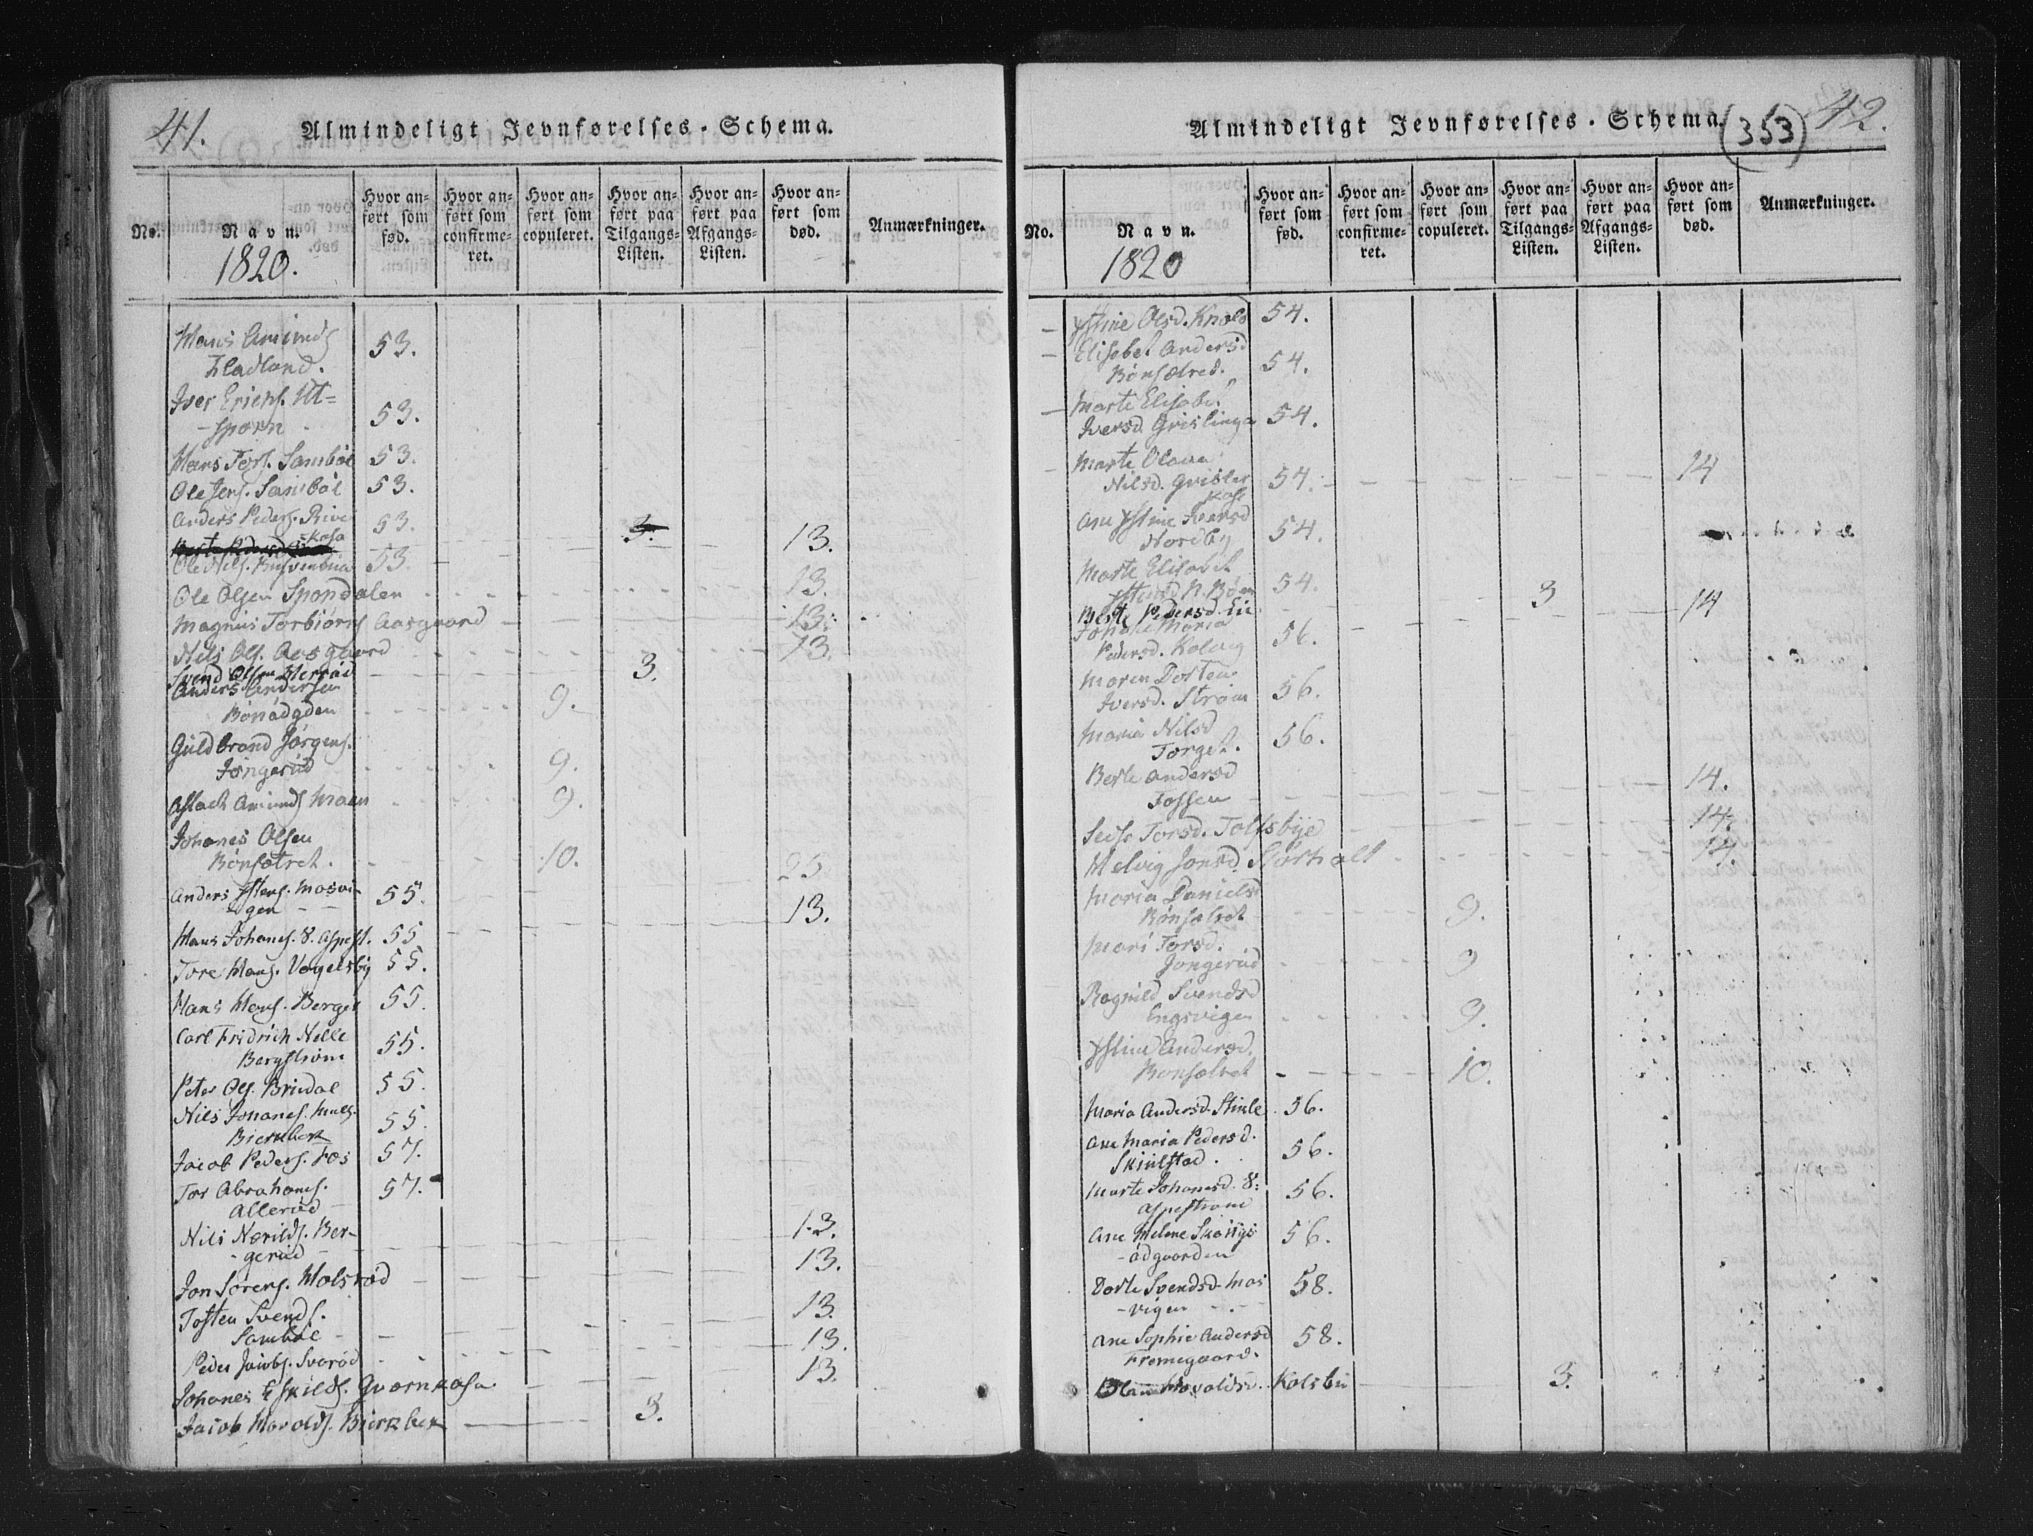 41.
Almindeligt Jevnførelses-Schema.
No.
Navn.
Hvor anført som fød.
Hvor anført som confirmeret.
Hvor anført som copuleret.
Hvor anført paa Tilgangs-Listen.
Hvor anført paa Afgangs-Listen.
Hvor anført som død.
Anmærkninger.
1820.
Hans Amunds
Fladland. 53.
Iver Erichs. Ut=
-sporn 53.
Hans Tors. Sambøl 53.
Ole Jens. Sambøl 53.
Anders Peders. 53.
kasa 13.
Ole Nils. 53. 13.
Ole Olsen Spondalen
Magnus Torbiørns Aasgaard 13.
Nils Ols. Aasgaard 13.
Svend Olsen 3.
Anders Andersen
Bønådgden 9.
Guldbrand Jørgens.
Jongerud 9.
Aslach Amunds Moen 9.
Johanes Olsen
Bønsætret. 10. 25
Anders Ystens. Mosvi-
-gen 55. 13.
Hans Johanes. 8. Aspest. 55
Tore Hans. Vogelsby 55.
Hans Hans. Berger 55.
Carl Fridrich Helle
Bergstrøm 55.
Peter Ols. Bredal 55.
Nils Johanes.
Bierkbek 55.
Jacob Peders. Fos 57.
Tor Abrahams.
Allerud 57.
Nils Nærilds. Ber-
-gerud 13.
Jon Sørens. Holsrød 13.
Tosten Svends.
Sambøl 13.
Peder Jacobs. Svarød 13.
Johanes Eskilds. Qvernkasa 13.
Jacob Horolds. Bierkbek 3.
Almindeligt Jevnførelses-Schema.
(353)
42.
No.
Navn.
Hvor anført som fød.
Hvor anført som confirmeret.
Hvor anført som copuleret.
Hvor anført paa Tilgangs-Listen.
Hvor anført paa Afgangs-Listen.
Hvor anført som død.
Anmærkninger.
1820
Ystine Olsd. Knold 54.
Elisabet Andersd
Bønsætred. 54.
Marte Elisabe.
Iversd. Grislinga 54.
Marte Olava
Nilsd. Grisler
kase 54. 14
Ane Ystine Iversd
Nordby 54.
Marte Elisabet
Ystensd N. Bøen 54.
Berte Pedersd. Lie 3 14
Johane Maria
Pedersd. Kolvig 56.
Maren Dorten
Iversd. Strøm 56.
Maria Nilsd
Torget. 56.
Berte Andersd
Fossen 14.
Seise Torsd. Tolfsbye 14.
Helvig Jonsd. Størholt 14.
Maria Danielsd
Bønsætret 9.
Mari Torsd.
Jongerud 9
Ragnild Svendsd
Engsvigen 9.
Ystine Andersd.
Bønsætret 10.
Maria Andersd. Stinle 56.
Ane Maria Pedersd.
Skiulstad. 56.
Marte Johanesd. 8.
Aspestrøm 56.
Ane Helene Skougs
-ådgaarden 56.
Dorte Svendsd. Mos
-vigen 58.
Ane Sophie Andersd
Fromegaard. 58.
Horoldsd. Kolsbu 3.